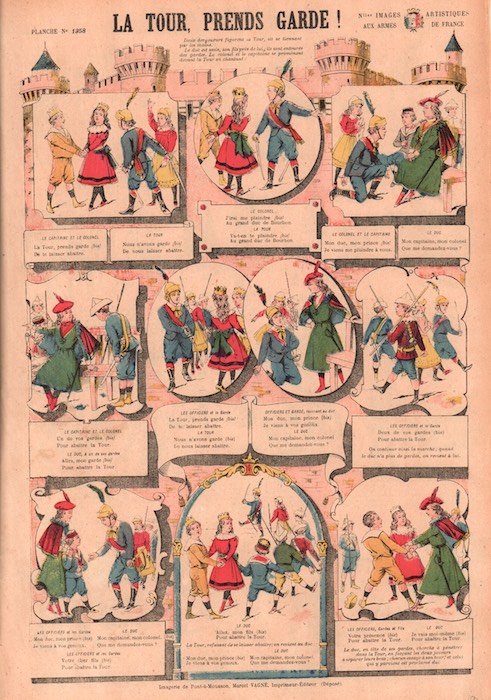 LA TOUR, PRENDS GARDE !
PLANCHE Nº 1358
Nlles IMAGES ARTISTIQUES
AUX ARMES DE FRANCE
Deux demoiselles figurent la Tour, en se tenant
par les mains.
Le duc est assis, son fils près de lui, ils sont entourés
des gardes. Le colonel et le capitaine se promènent
devant la Tour en chantant :
LE CAPITAINE ET LE COLONEL
La Tour, prends garde (bis)
De te laisser abattre.
LA TOUR
Nous n'avons garde (bis)
De nous laisser abattre.
LE COLONEL
J'irai me plaindre (bis)
Au grand duc de Bourbon.
LA TOUR
Va-t-en te plaindre (bis)
Au grand duc de Bourbon.
LE COLONEL ET LE CAPITAINE
Mon duc, mon prince (bis)
Je viens me plaindre à vous.
LE DUC
Mon capitaine, mon colonel
Que me demandez-vous ?
LE CAPITAINE ET LE COLONEL
Un de vos gardes (bis)
Pour abattre la Tour.
LE DUC, à un de ses gardes
Allez, mon garde (bis)
Pour abattre la Tour.
LES OFFICIERS et le Garde
La Tour, prends garde (bis)
De te laisser abattre.
LA TOUR
Nous n'avons garde (bis)
De nous laisser abattre.
OFFICIERS ET GARDE, revenant au duc
Mon duc, mon prince (bis)
Je viens à vos genoux.
LE DUC
Mon capitaine, mon colonel
Que me demandez-vous ?
LES OFFICIERS et le Garde
Deux de vos gardes (bis)
Pour abattre la Tour.
On continue ainsi la marche; quand
le duc n'a plus de gardes, on revient à lui.
LES OFFICIERS et les Gardes
Mon duc, mon prince (bis)
Je viens à vos genoux.
LE DUC
Mon capitaine, mon colonel.
Que me demandez-vous ?
LES OFFICIERS et les Gardes
Votre cher fils (bis)
Pour abattre la Tour.
LE DUC
Allez, mon fils (bis)
Pour abattre la Tour.
La Tour, refusant de se laisser abattre; on revient au duc
Mon duc, mon prince (bis)
Je viens à vos genoux.
LE DUC
Mon capitaine, mon colonel
Que me demandez-vous ?
LES OFFICIERS, Gardes et Fils
Votre présence (bis)
Pour abattre la Tour.
LE DUC
Je vais moi-même (bis)
Pour abattre la Tour.
Le duc, en tête de ses gardes, cherche à pénétrer
dans la Tour, en forçant les deux joueurs
à séparer leurs bras ; chacun essaye à son tour; le celui
qui y parvient est proclamé duc
Imagerie de Pont-à-Mousson, Marcel VAGNÉ, Imprimeur-Éditeur (Déposé).